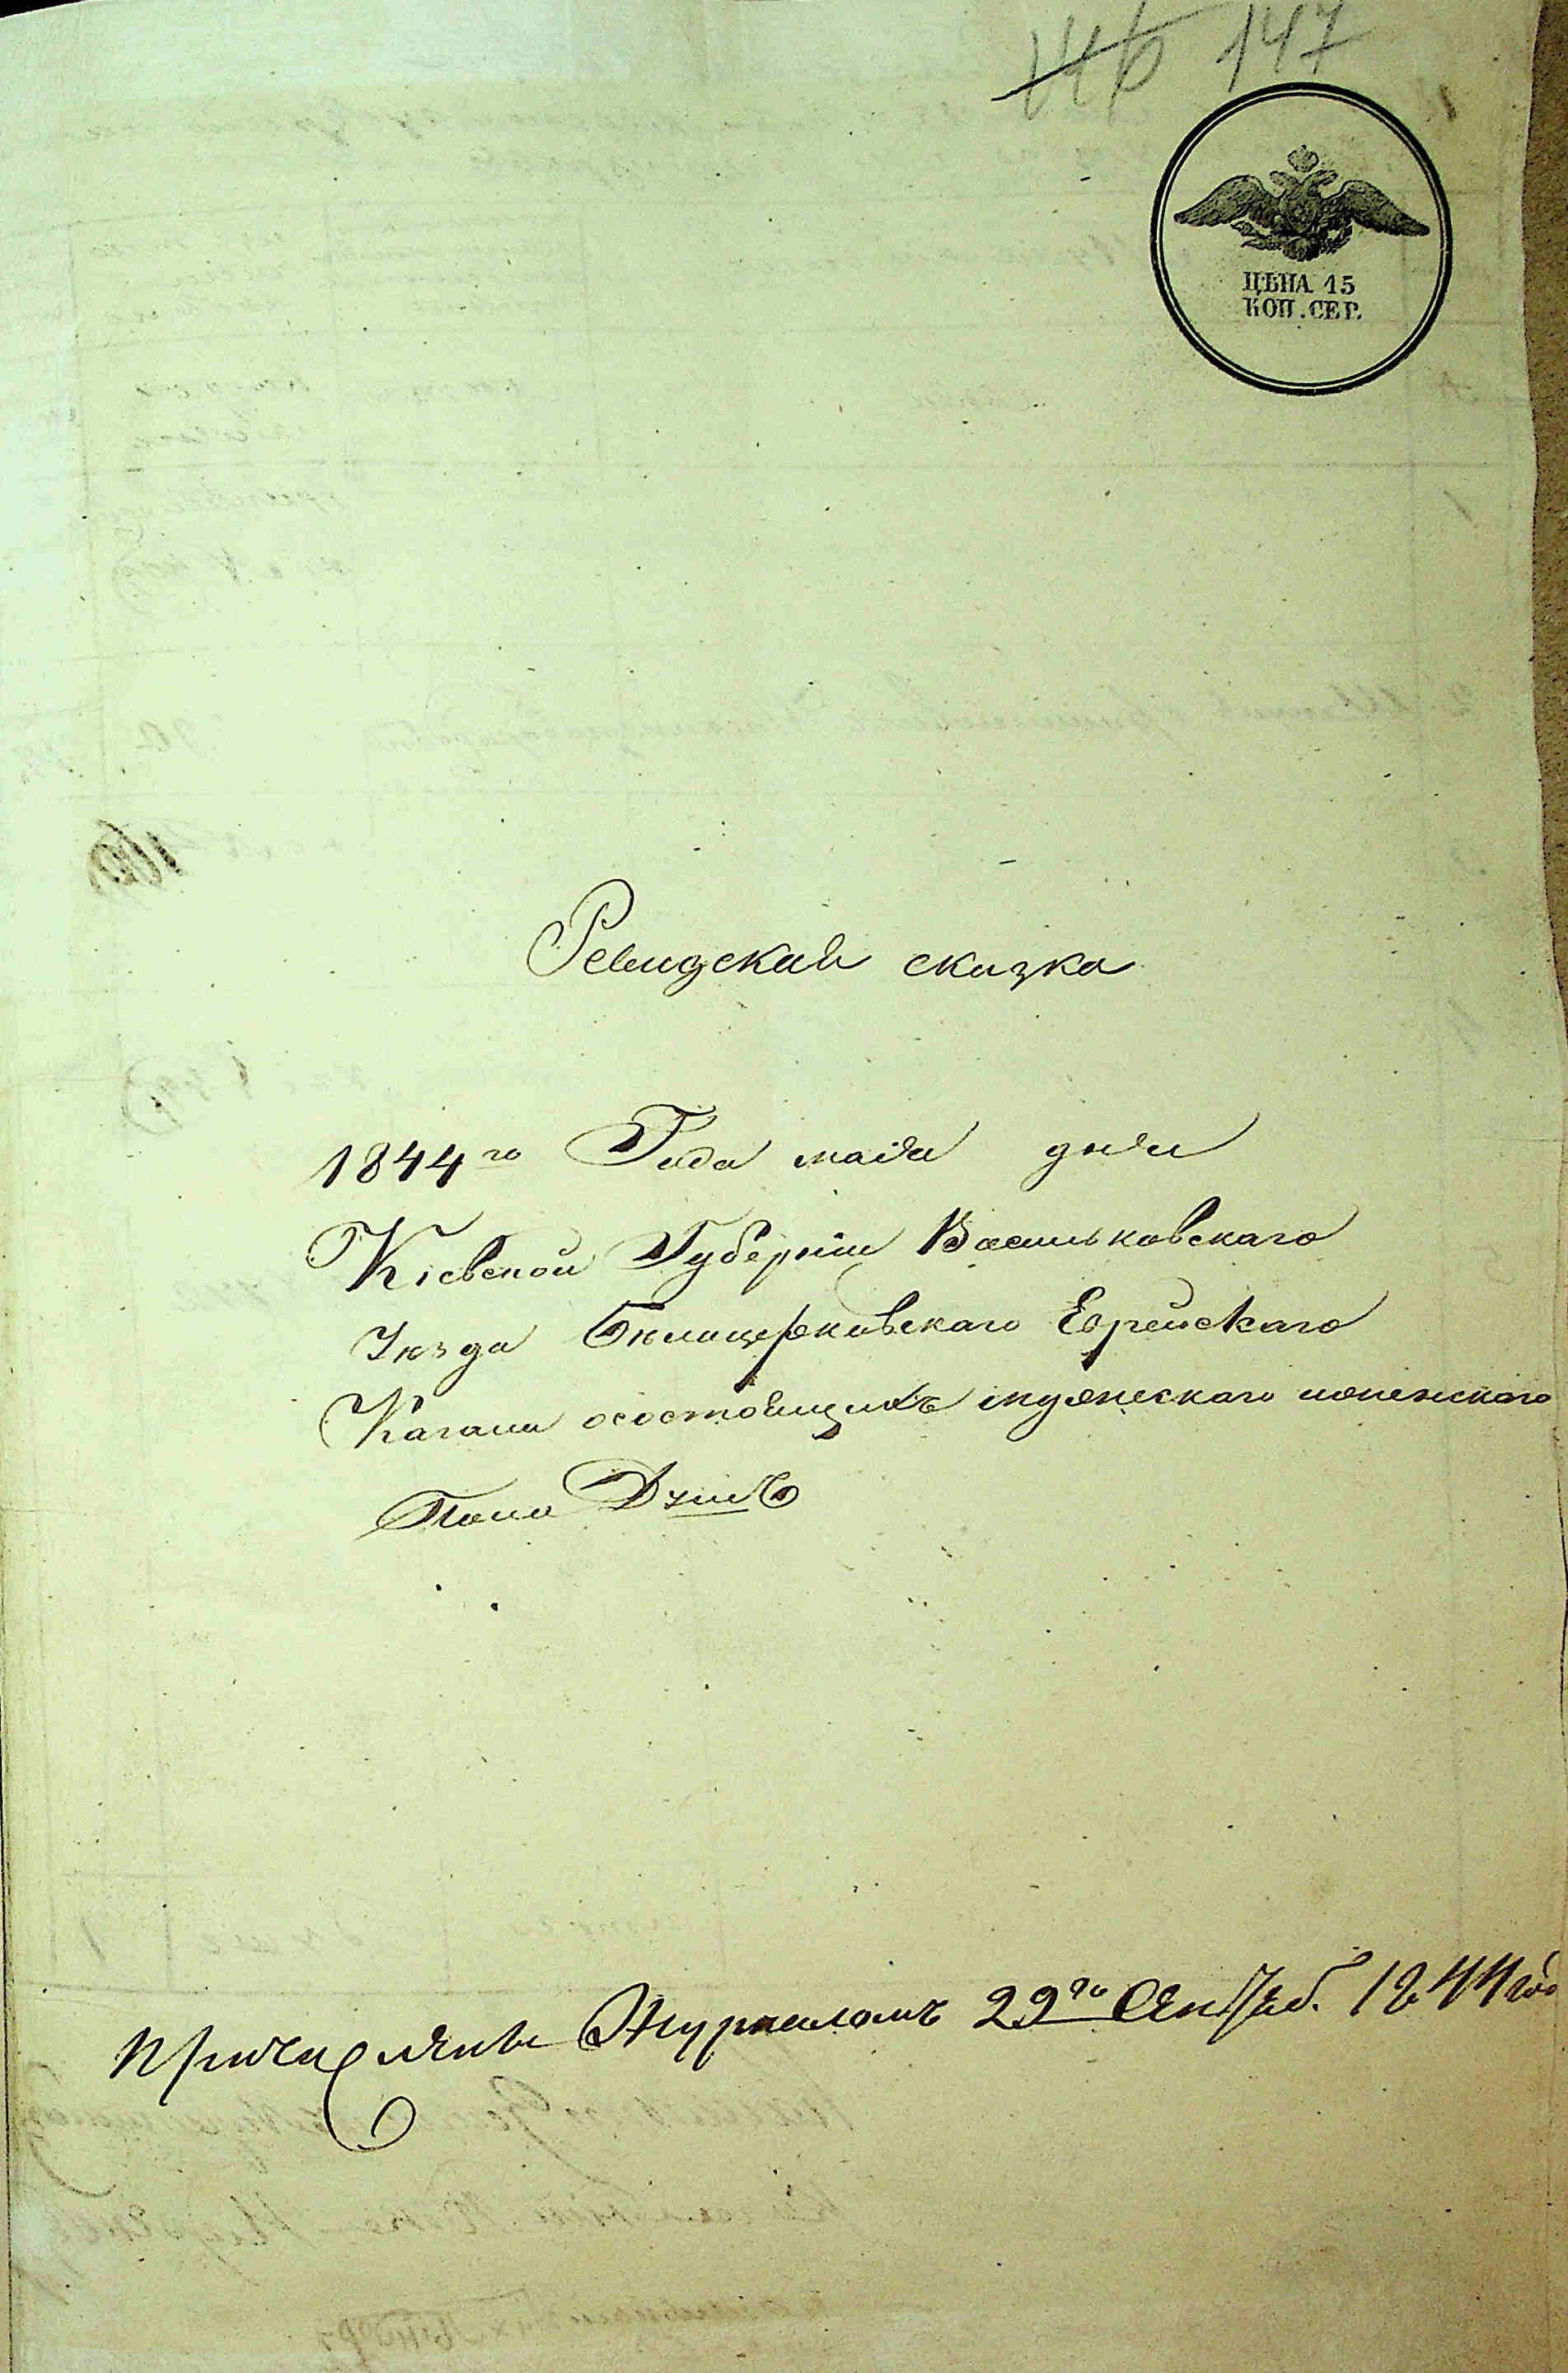 146 147
ЦѢНА 15
КОП. СЕР.
Ревизская сказка
1844го Года маія дня
Кіевской Губерніи Васильковскаго
Уѣзда Бѣлоцерковскаго Еврейскаго
Кагала осостоящихъ мужескаго иженскаго
Пола Душъ
Причислены Журналомъ 29го Сентяб. 1844го